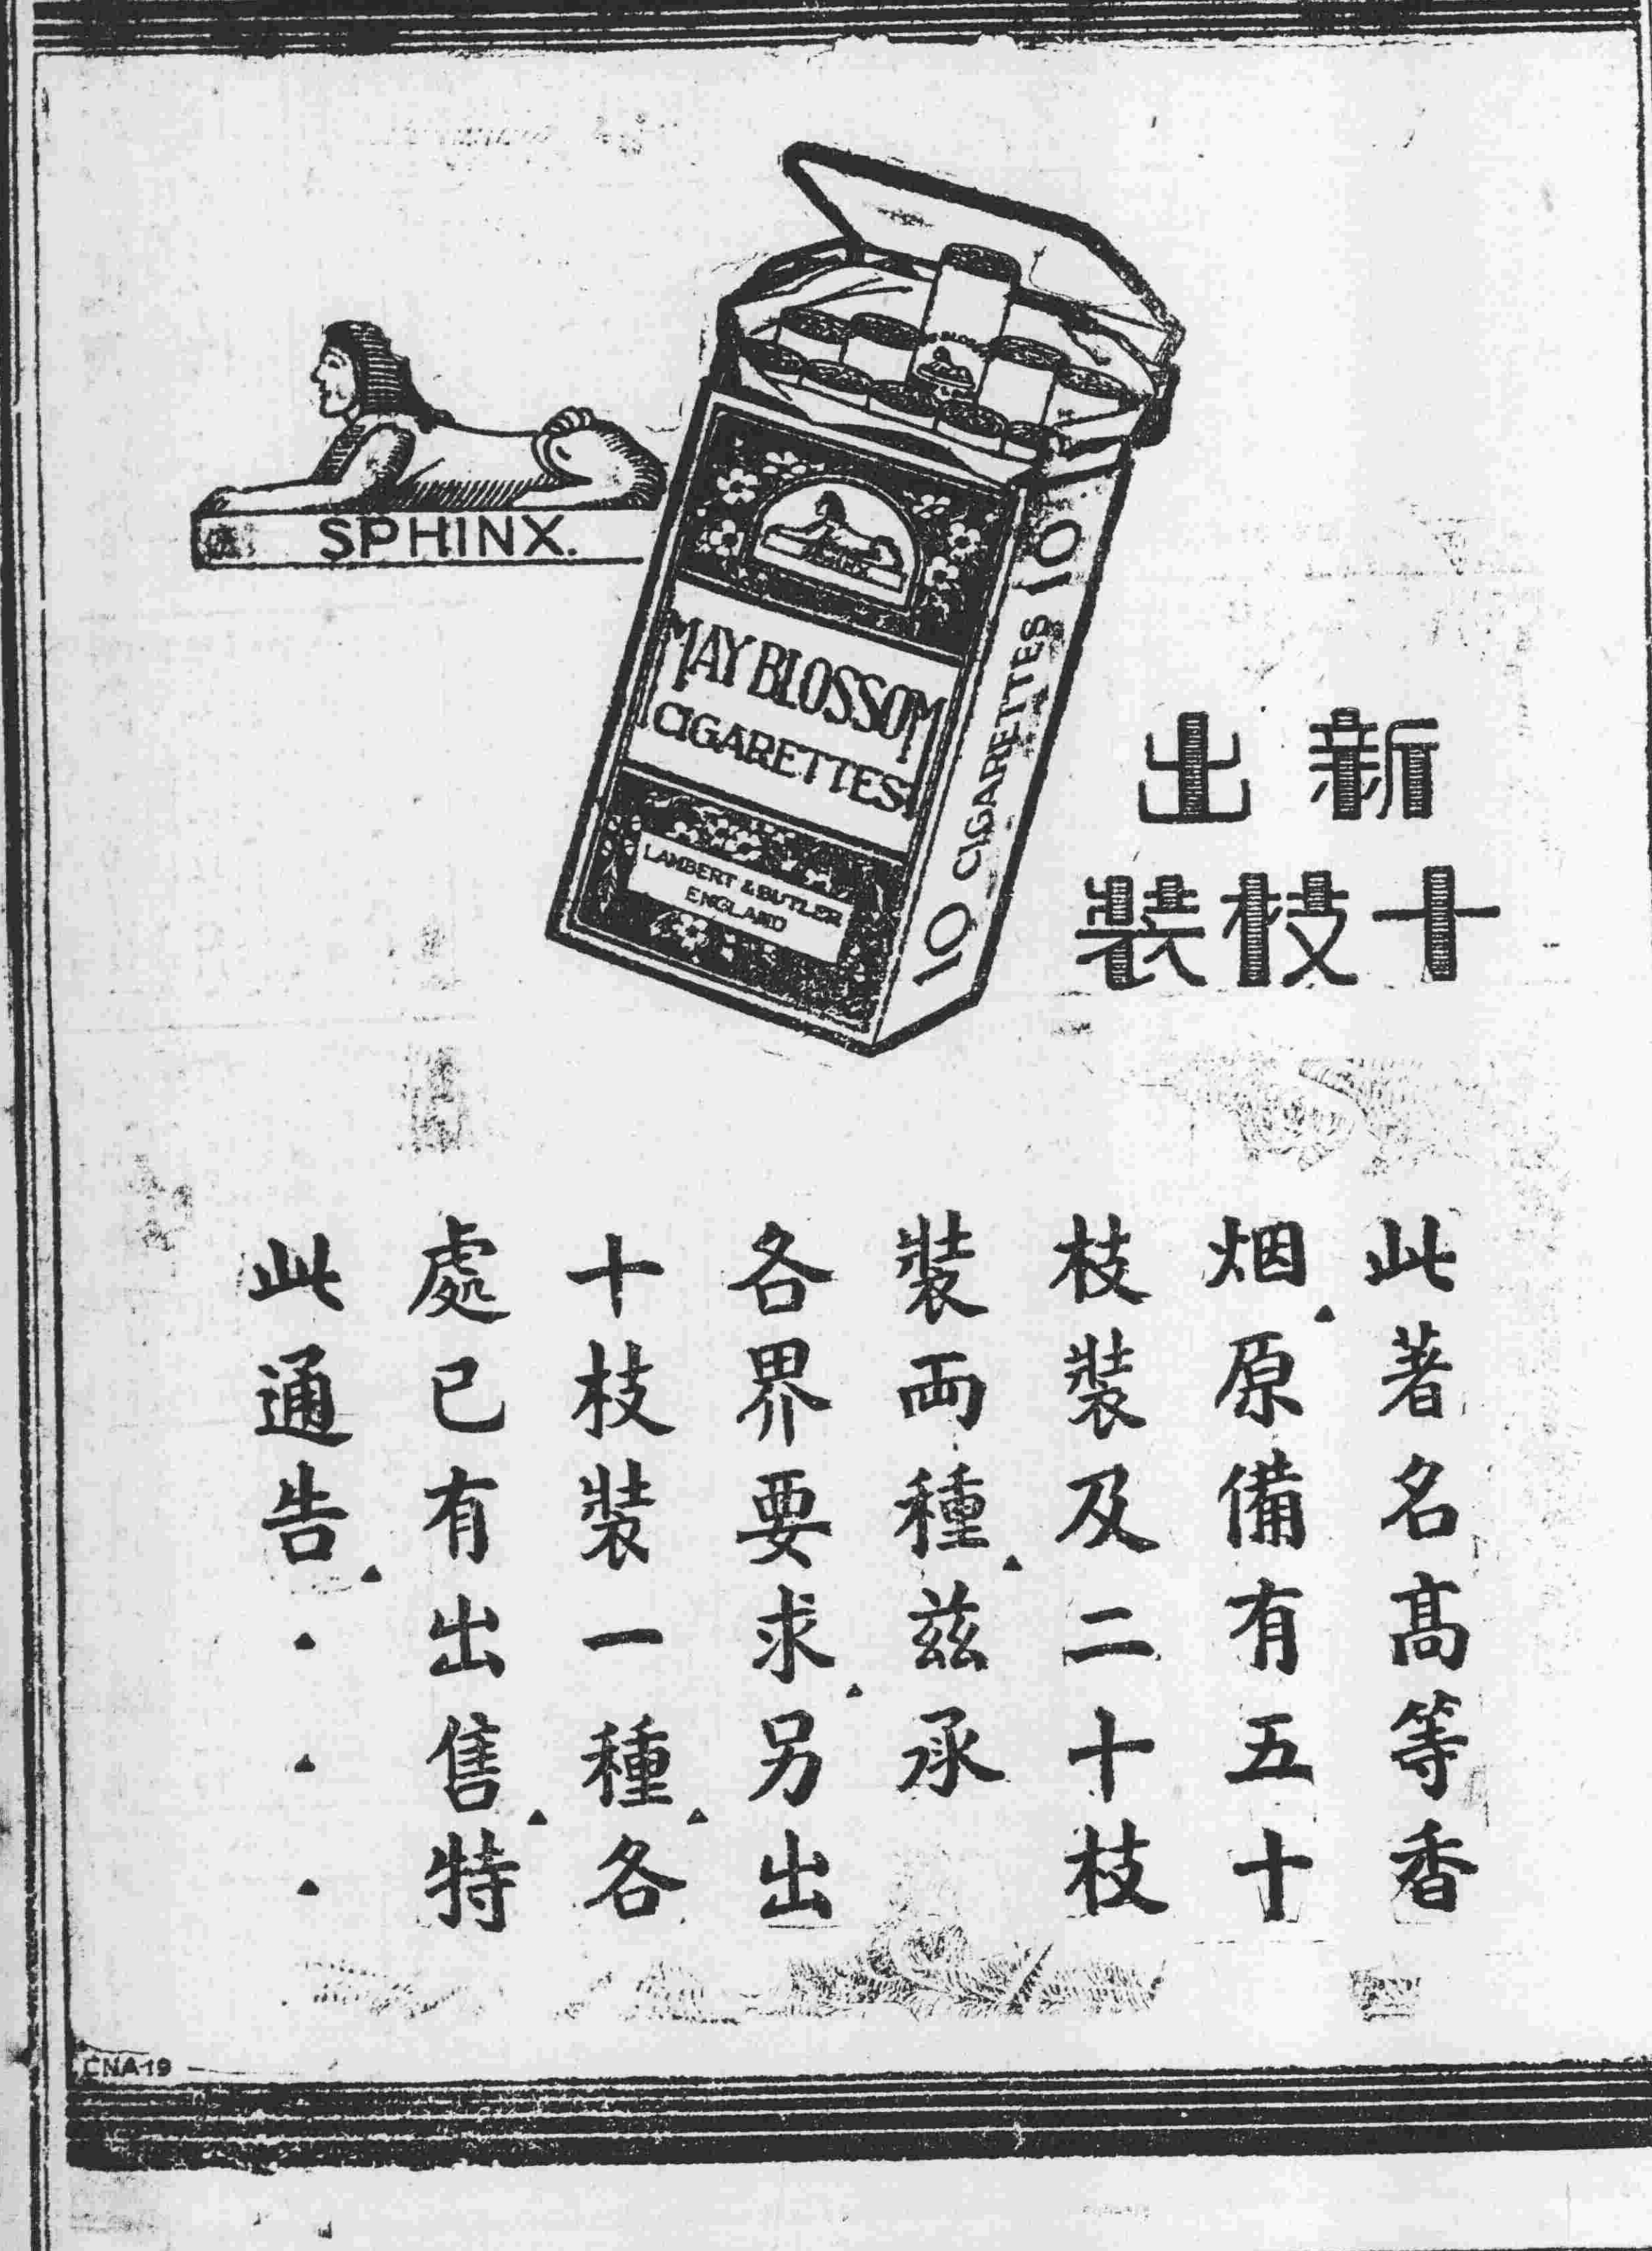 SPHINX.
MAY BLOSSOM
CIGARETTES
LAMBERT & BUTLER
ENGLAND
10 CIGARETTES 10
新出
十枝裝
此著名高等香
烟原備有五十
枝裝及二十枝
裝両種兹承
各界要求另出
十枝裝一種各
處已有出售特
此通告
CNA19